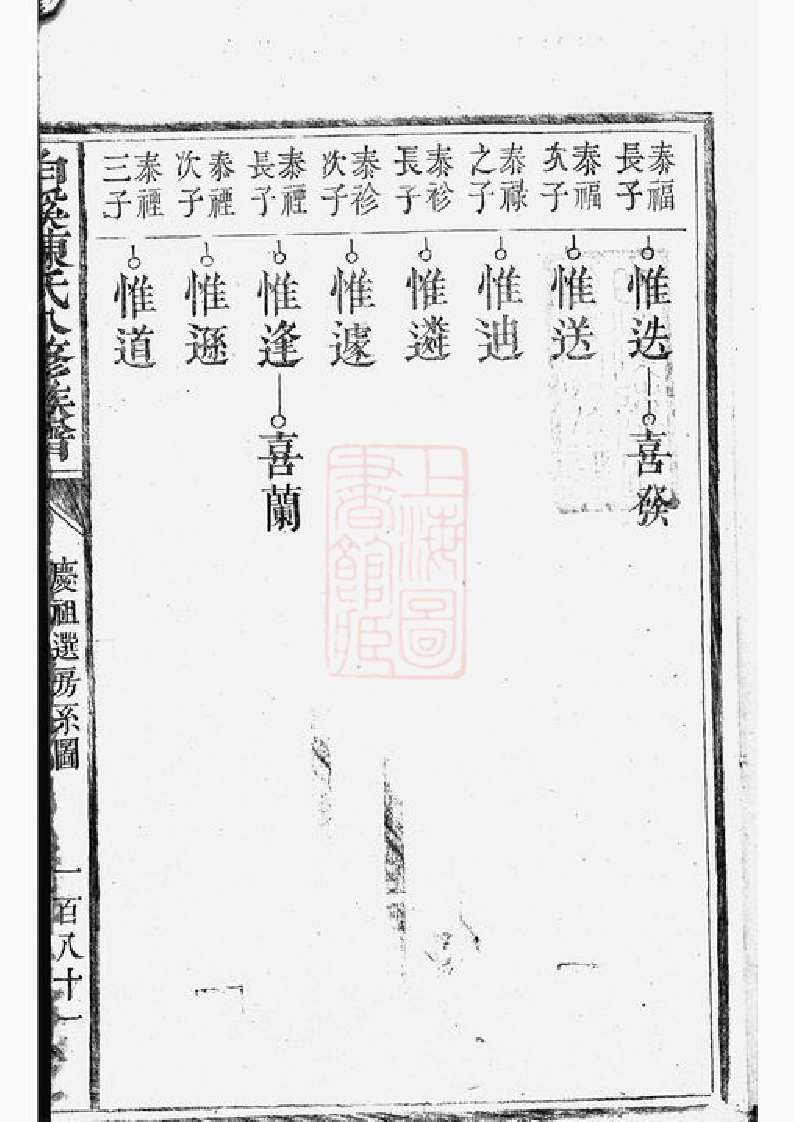 泰福長子
惟迭
喜癸
泰福次子
惟送
泰禄之子
惟迪
泰袗長子
惟遴
泰袗次子
惟遽
泰禋長子
惟逢
喜蘭
泰禋次子
惟遜
泰禋三子
惟道
陳氏八修族譜
慶祖選房系圖
一百八十一
上海圖書館藏